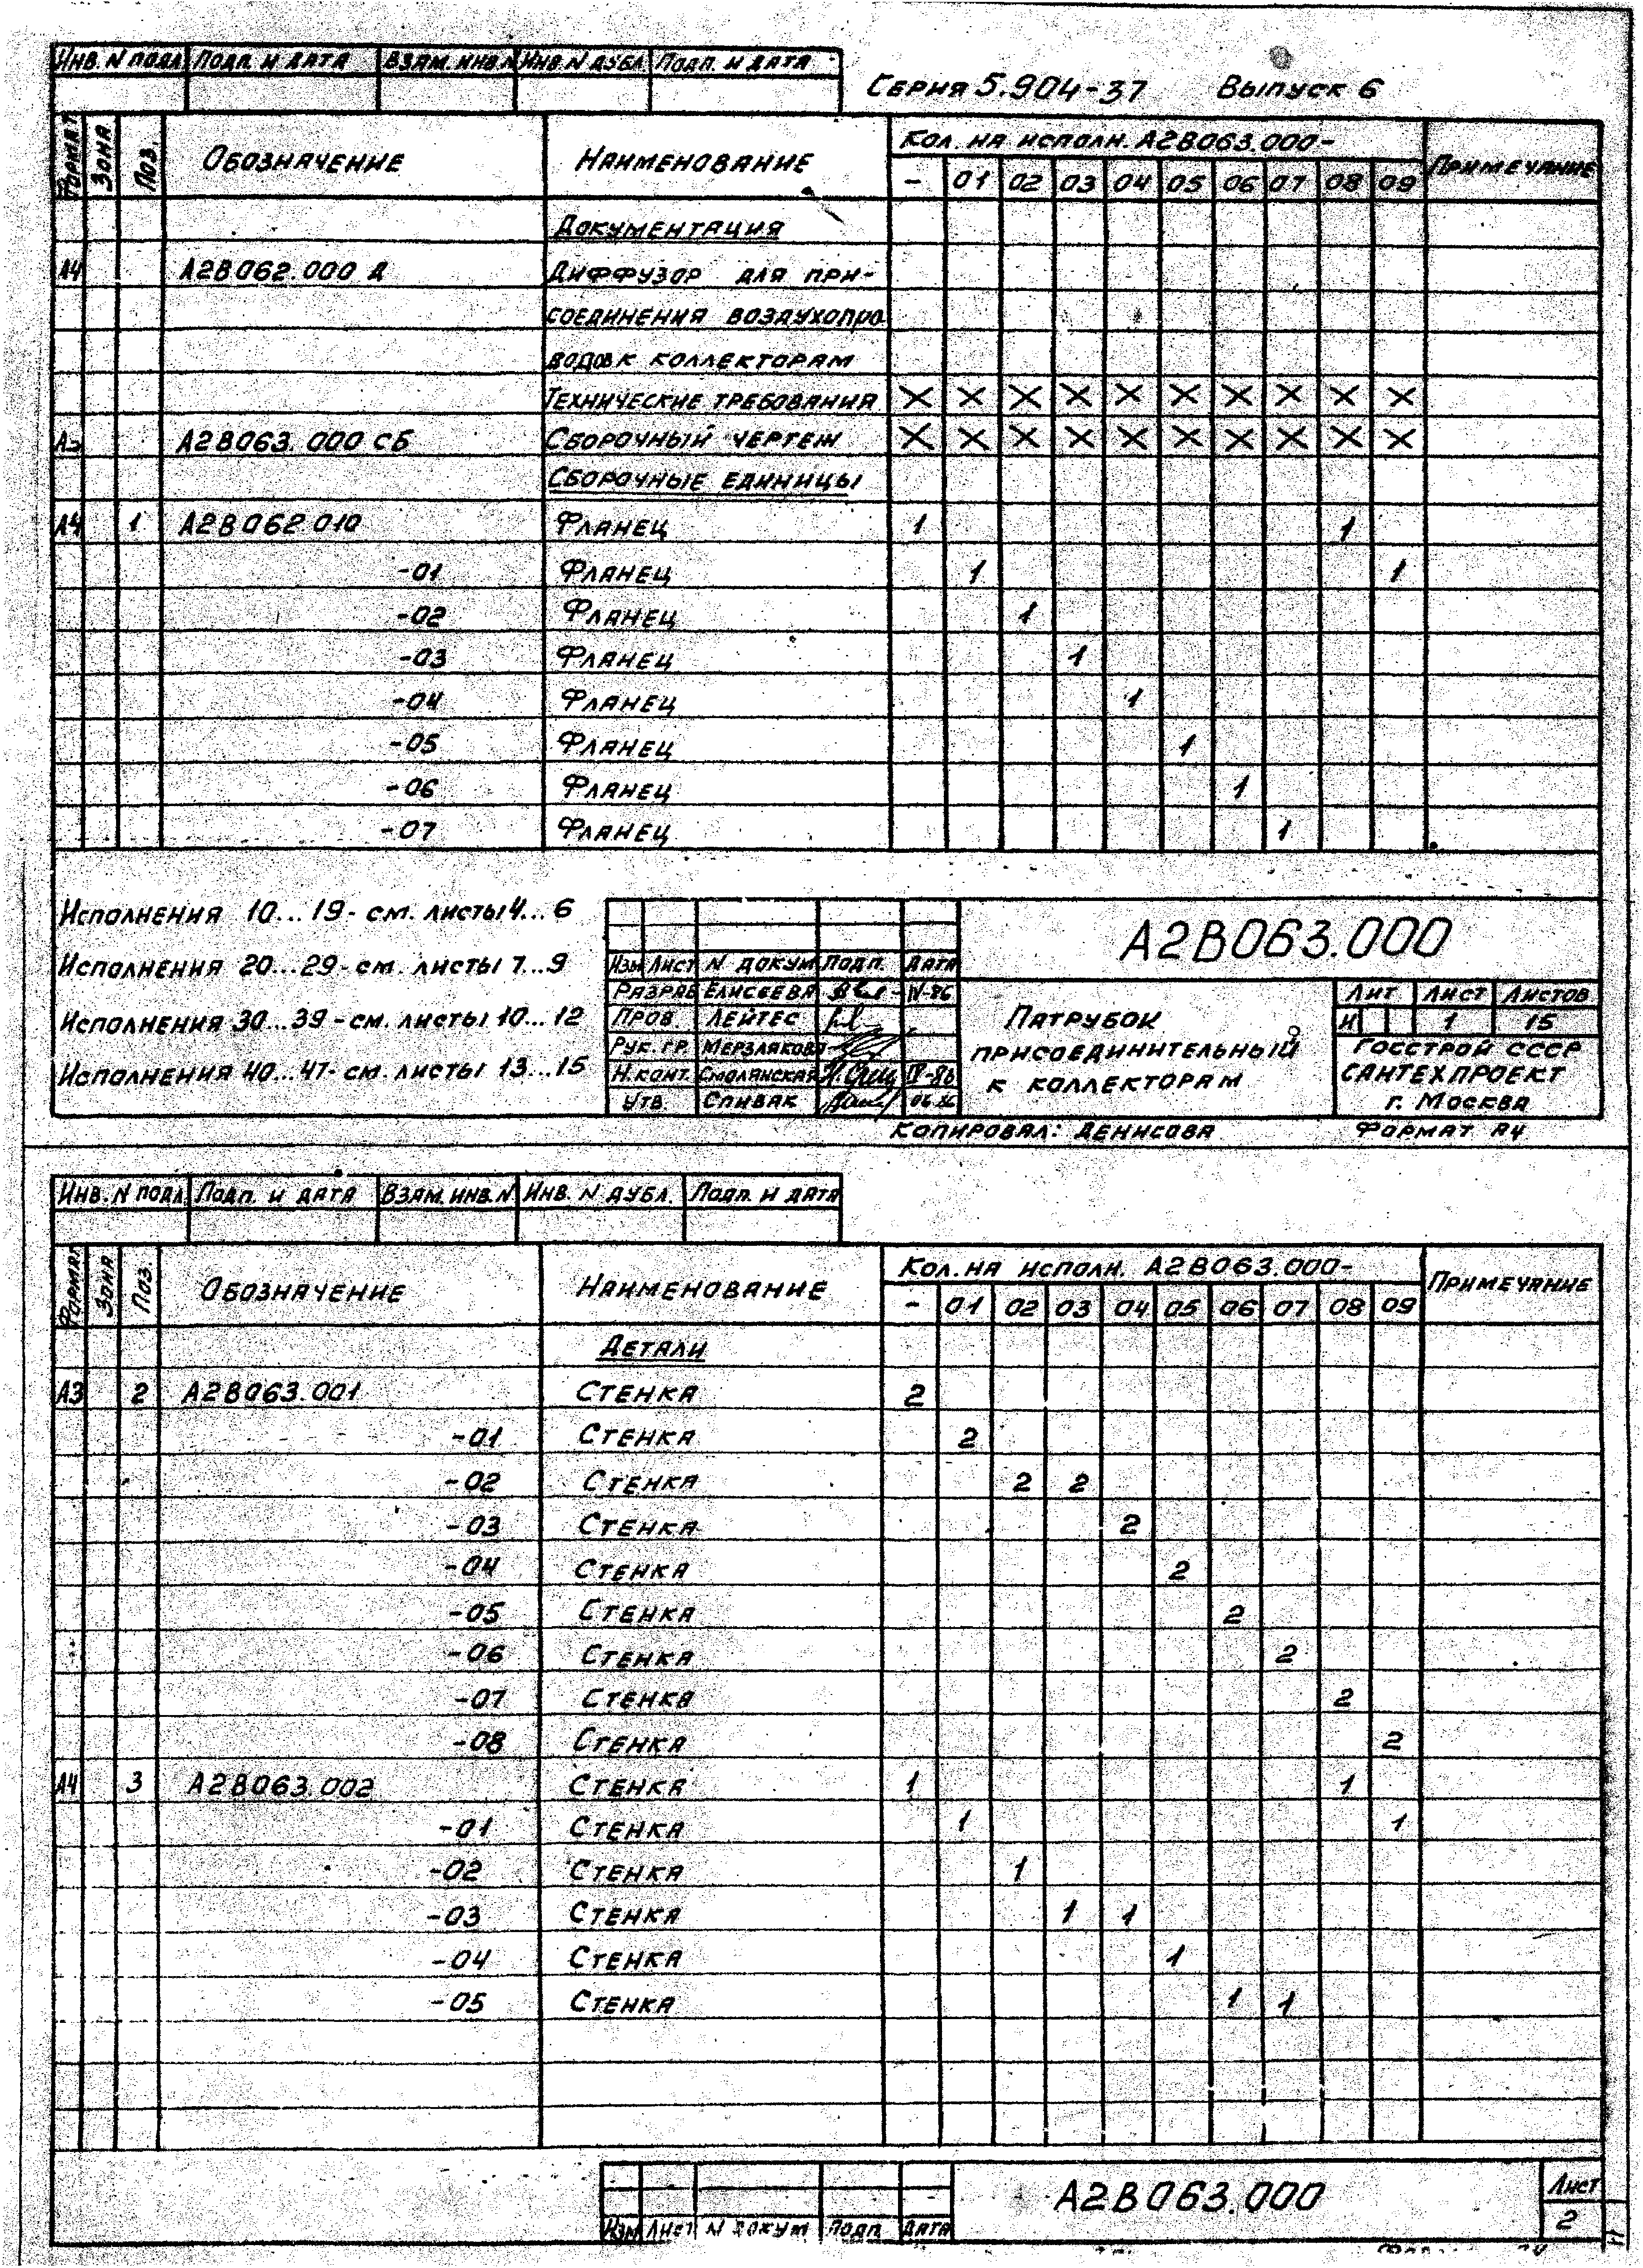 Инв. N подл. Подп. и дата Взам. инв. N Инв. N дубл. Подп. и дата
Серия 5.904-37 Выпуск 6
Формат Зона Поз. Обозначение Наименование Кол. на исполн. А2В063.000- Примечание
- 01 02 03 04 05 06 07 08 09
Документация
А4 А2В062.000 Д Диффузор для при-
соединения воздухопро
водов к коллекторам
Технические требования X X X X X X X X X X
А3 А2В063.000 СБ Сборочный чертеж X X X X X X X X X X
Сборочные единицы
А4 1 А2В062.010 Фланец 1 1
-01 Фланец 1 1
-02 Фланец 1
-03 Фланец 1
-04 Фланец 1
-05 Фланец 1
-06 Фланец 1
-07 Фланец 1
Исполнения 10...19 - см. листы 4...6
Исполнения 20...29 - см. листы 7...9
Исполнения 30...39 - см. листы 10...12
Исполнения 40...47 - см. листы 13...15
А2В063.000
Изм Лист N докум Подп. Дата
Разраб Елисеева IV-86
Пров Лейтес
Рук. гр. Мерзлякова
Н.конт. Смолянская IV-86
Утв. Спивак 06.86
Патрубок
присоединительный
к коллекторам
Лит Лист Листов
И 1 15
Госстрой СССР
САНТЕХПРОЕКТ
г. Москва
Копировал: Денисова Формат А4
Инв. N подл. Подп. и дата Взам. инв. N Инв. N дубл. Подп. и дата
Формат Зона Поз. Обозначение Наименование Кол. на исполн. А2В063.000- Примечание
- 01 02 03 04 05 06 07 08 09
Детали
А3 2 А2В063.001 Стенка 2
-01 Стенка 2
-02 Стенка 2 2
-03 Стенка 2
-04 Стенка 2
-05 Стенка 2
-06 Стенка 2
-07 Стенка 2
-08 Стенка 2
А4 3 А2В063.002 Стенка 1 1
-01 Стенка 1 1
-02 Стенка 1
-03 Стенка 1 1
-04 Стенка 1
-05 Стенка 1 1
Изм Лист N докум Подп. Дата
А2В063.000
Лист
2